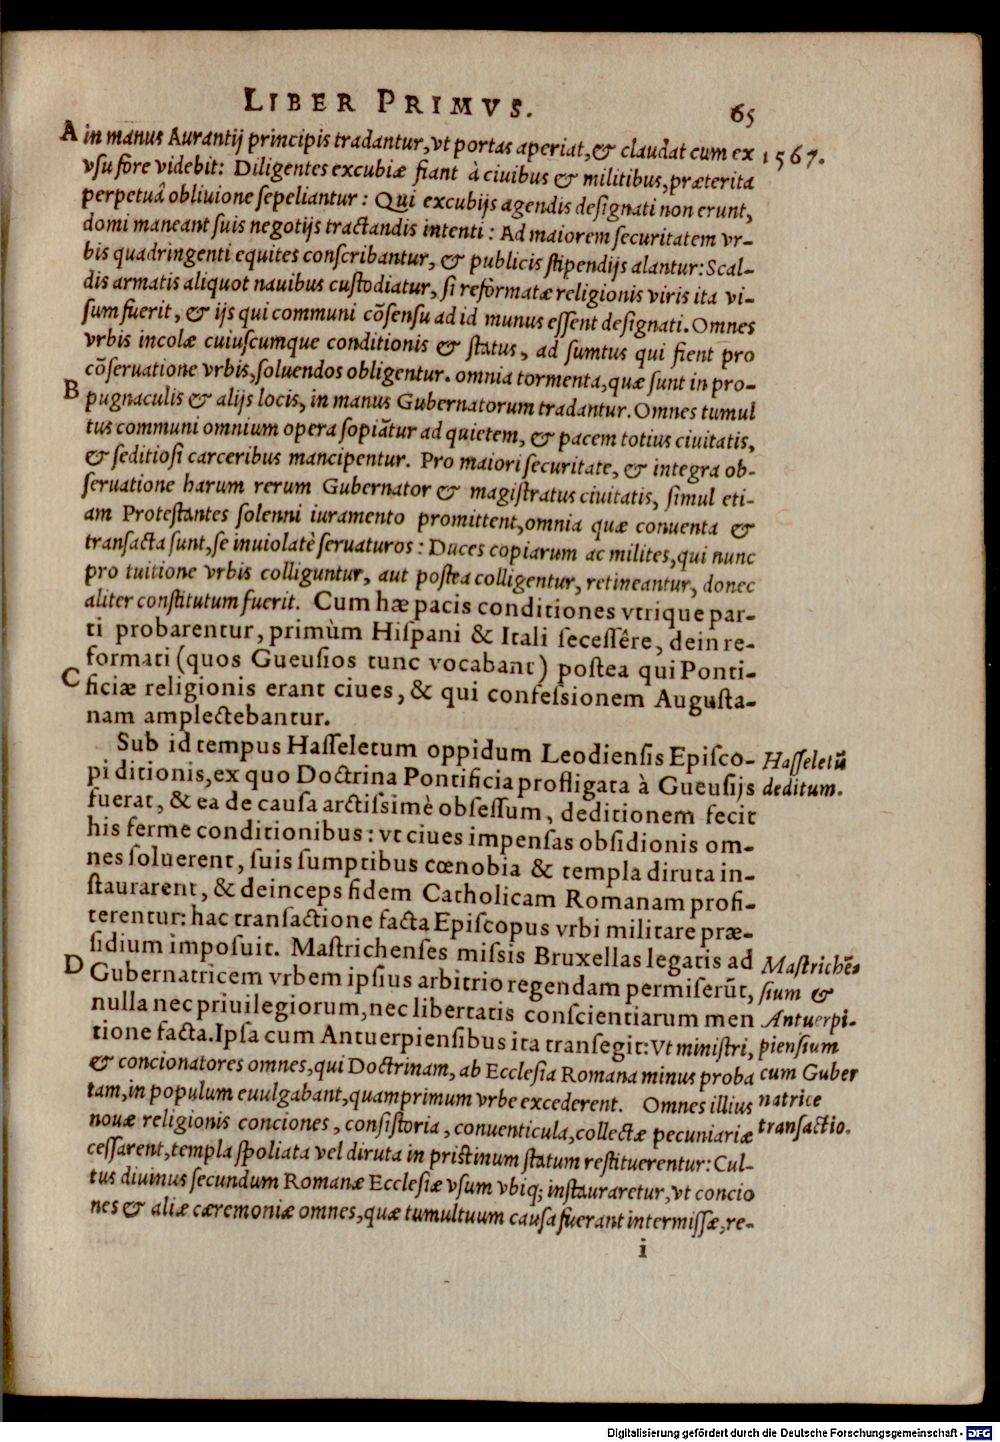 LIBER PRIMVS. 65
A in manus Aurantij principis tradantur, vt portas aperiat, & claudat cum ex 1567.
vsu fore videbit: Diligentes excubiæ fiant à ciuibus & militibus, præterita
perpetuâ obliuione sepeliantur: Qui excubijs agendis designati non erunt,
domi maneant suis negotijs tractandis intenti: Ad maiorem securitatem vr-
bis quadringenti equites conscribantur, & publicis stipendijs alantur: Scal-
dis armatis aliquot nauibus custodiatur, si reformatæ religionis viris ita vi-
sum fuerit, & ijs qui communi cõsensu ad id munus essent designati. Omnes
vrbis incolæ cuiuscumque conditionis & status, ad sumtus qui fient pro
cõseruatione vrbis, soluendos obligentur. omnia tormenta, quæ sunt in pro-
B pugnaculis & alijs locis, in manus Gubernatorum tradantur. Omnes tumul
tus communi omnium opera sopiãtur ad quietem, & pacem totius ciuitatis,
& seditiosi carceribus mancipentur. Pro maiori securitate, & integra ob-
seruatione harum rerum Gubernator & magistratus ciuitatis, simul eti-
am Protestantes solenni iuramento promittent, omnia quæ conuenta &
transacta sunt, se inuiolatè seruaturos: Duces copiarum ac milites, qui nunc
pro tuitione vrbis colliguntur, aut postea colligentur, retineantur, donec
aliter constitutum fuerit. Cum hæ pacis conditiones vtrique par-
ti probarentur, primùm Hispani & Itali secessêre, dein re-
formati (quos Gueusios tunc vocabant) postea qui Ponti-
C ficiæ religionis erant ciues, & qui confessionem Augusta-
nam amplectebantur.
Sub id tempus Hasseletum oppidum Leodiensis Episco- Hasseletũ
pi ditionis, ex quo Doctrina Pontificia profligata à Gueusijs deditum.
fuerat, & ea de causa arctissimè obsessum, deditionem fecit
his ferme conditionibus: vt ciues impensas obsidionis om-
nes soluerent, suis sumptibus cœnobia & templa diruta in-
staurarent, & deinceps fidem Catholicam Romanam profi-
terentur: hac transactione facta Episcopus vrbi militare præ-
sidium imposuit. Mastrichenses missis Bruxellas legatis ad Mastrichẽ-
D Gubernatricem vrbem ipsius arbitrio regendam permiserũt, sium &
nulla nec priuilegiorum, nec libertatis conscientiarum men Antuerpi-
tione facta. Ipsa cum Antuerpiensibus ita transegit: Vt ministri, piensium
& concionatores omnes, qui Doctrinam, ab Ecclesia Romana minus proba cum Guber
tam, in populum euulgabant, quamprimum vrbe excederent. Omnes illius natrice
nouæ religionis conciones, consistoria, conuenticula, collectæ pecuniariæ transactio.
cessarent, templa spoliata vel diruta in pristinum statum restituerentur: Cul-
tus diuinus secundum Romanæ Ecclesiæ vsum vbiq; instauraretur, vt concio
nes & aliæ cæremoniæ omnes, quæ tumultuum causa fuerant intermissæ, re-
i
Digitalisierung gefördert durch die Deutsche Forschungsgemeinschaft - DFG